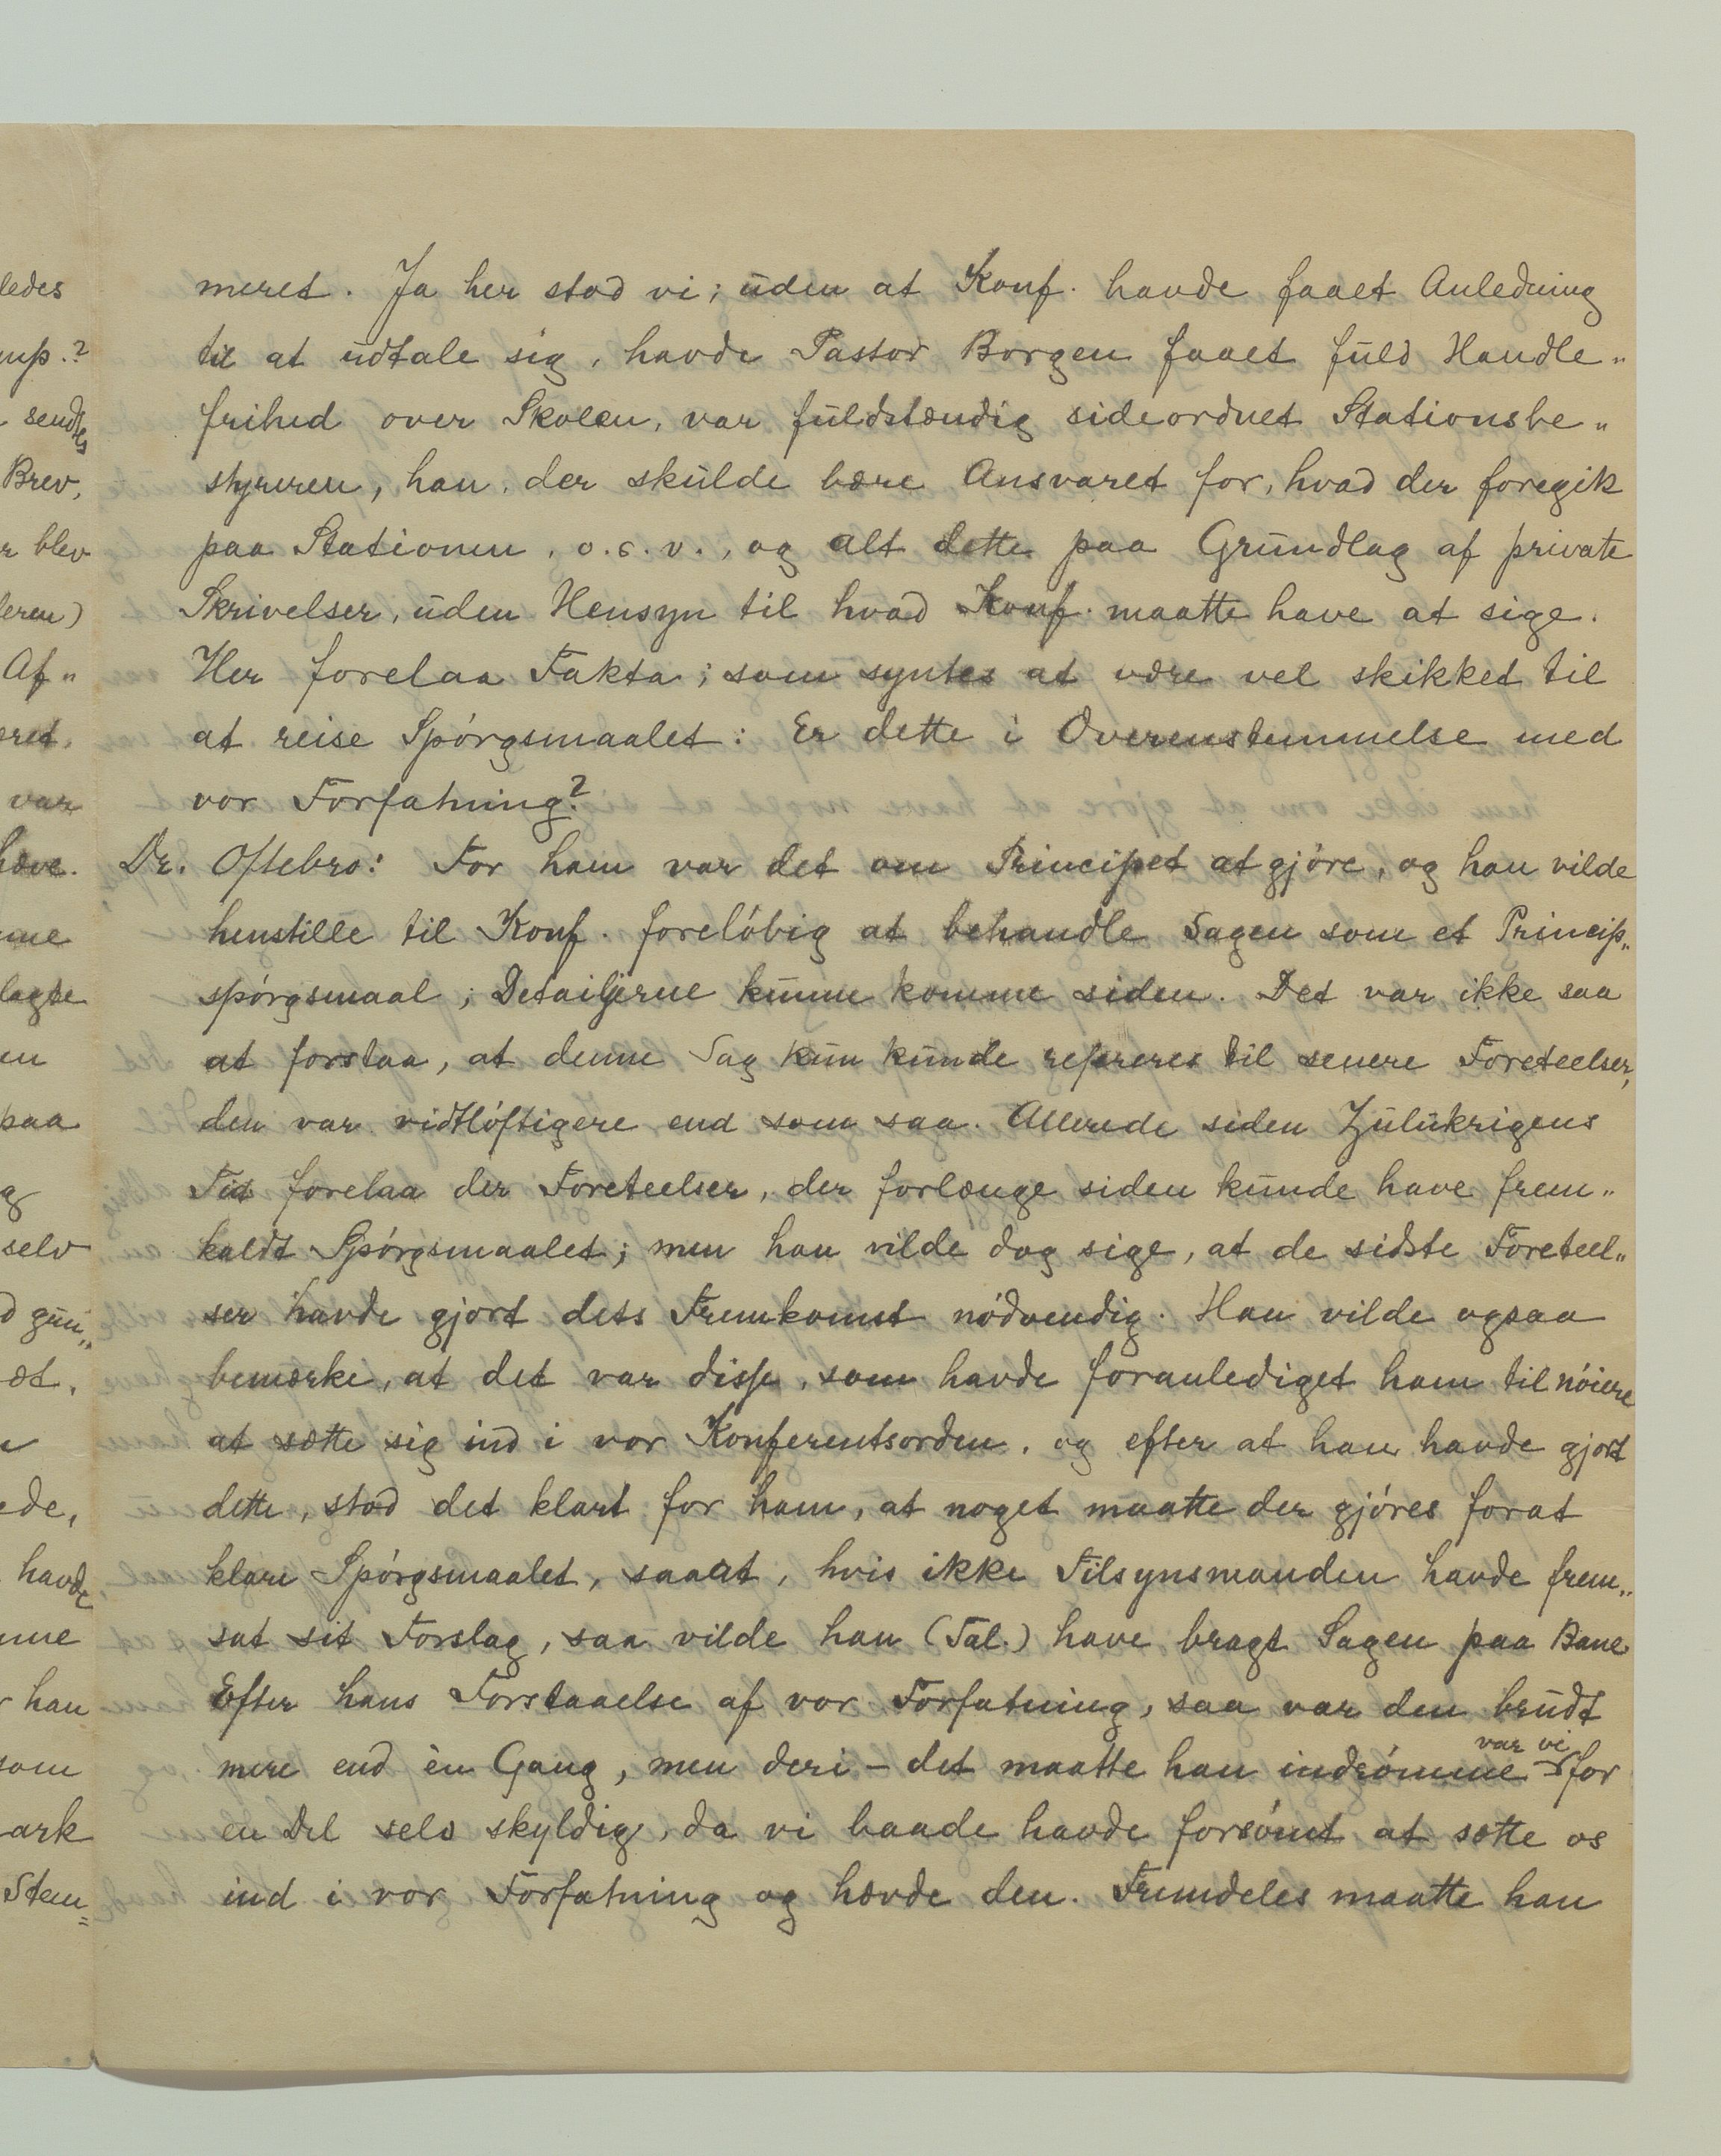 meret. Ja her stod vi; uden at Konf. havde faaet Anledning
til at udtale sig, havde Pastor Borgen faaet fuld Handle„
frihed over Skolen, var fuldstændig sideordnet Stationsbe„
styreren, han, der skulde bære Ansvaret for, hvad der foregik
paa Stationen, o.s.v., og alt dette paa Grundlag af private
Skrivelser, uden Hensyn til hvad Konf. maatte have at sige.
Her forelaa Fakta; som syntes at være vel skikket til
at reise Spórgsmaalet: Er dette i Overenstemmelse med
vor Forfatning?
Dr. Oftebro: For ham var det om Principet at gjóre, og han vilde
henstille til Konf. forelóbig at behandle Sagen som et Princip„
spórgsmaal; Detailjerne kunne komme siden. Det var ikke saa
at forstaa, at denne Sag kun kunde refereres til senere Foreteelser,
den var vidtlóftigere end som saa. Allerede siden Zulukrigens
Tid forelaa der Foreteelser, der forlænge siden kunde have frem„
kaldt Spórgsmaalet; men han vilde dog sige, at de sidste Foreteel„
ser havde gjort dets Fremkomst nódvendig. Han vilde ogsaa
bemærke, at det var disse, som havde foranlediget ham til nóiere
at sætte sig ind i vor Konferentsorden, og efter at han havde gjort
dette, stod det klart for ham, at noget maatte der gjóres forat
klare Spórgsmaalet, saaat, hvis ikke Tilsynsmanden havde frem„
sat sit Forslag, saa vilde han (Tal.) have bragt Sagen paa Bane
Efter hans Forstaaelse af vor Forfatning, saa var den brudt
mere end èn Gang, men deri – det maatte han indrómme – var vi for
en Del selv skyldig, da vi baade havde forsómt at sætte os
ind i vor Forfatning og hævde den. Fremdeles maatte han
ledes
sendtes
Brev,
blev
Af„
var
hæve.
lagte
paa
selv
havde
han
som
ark
Stem„